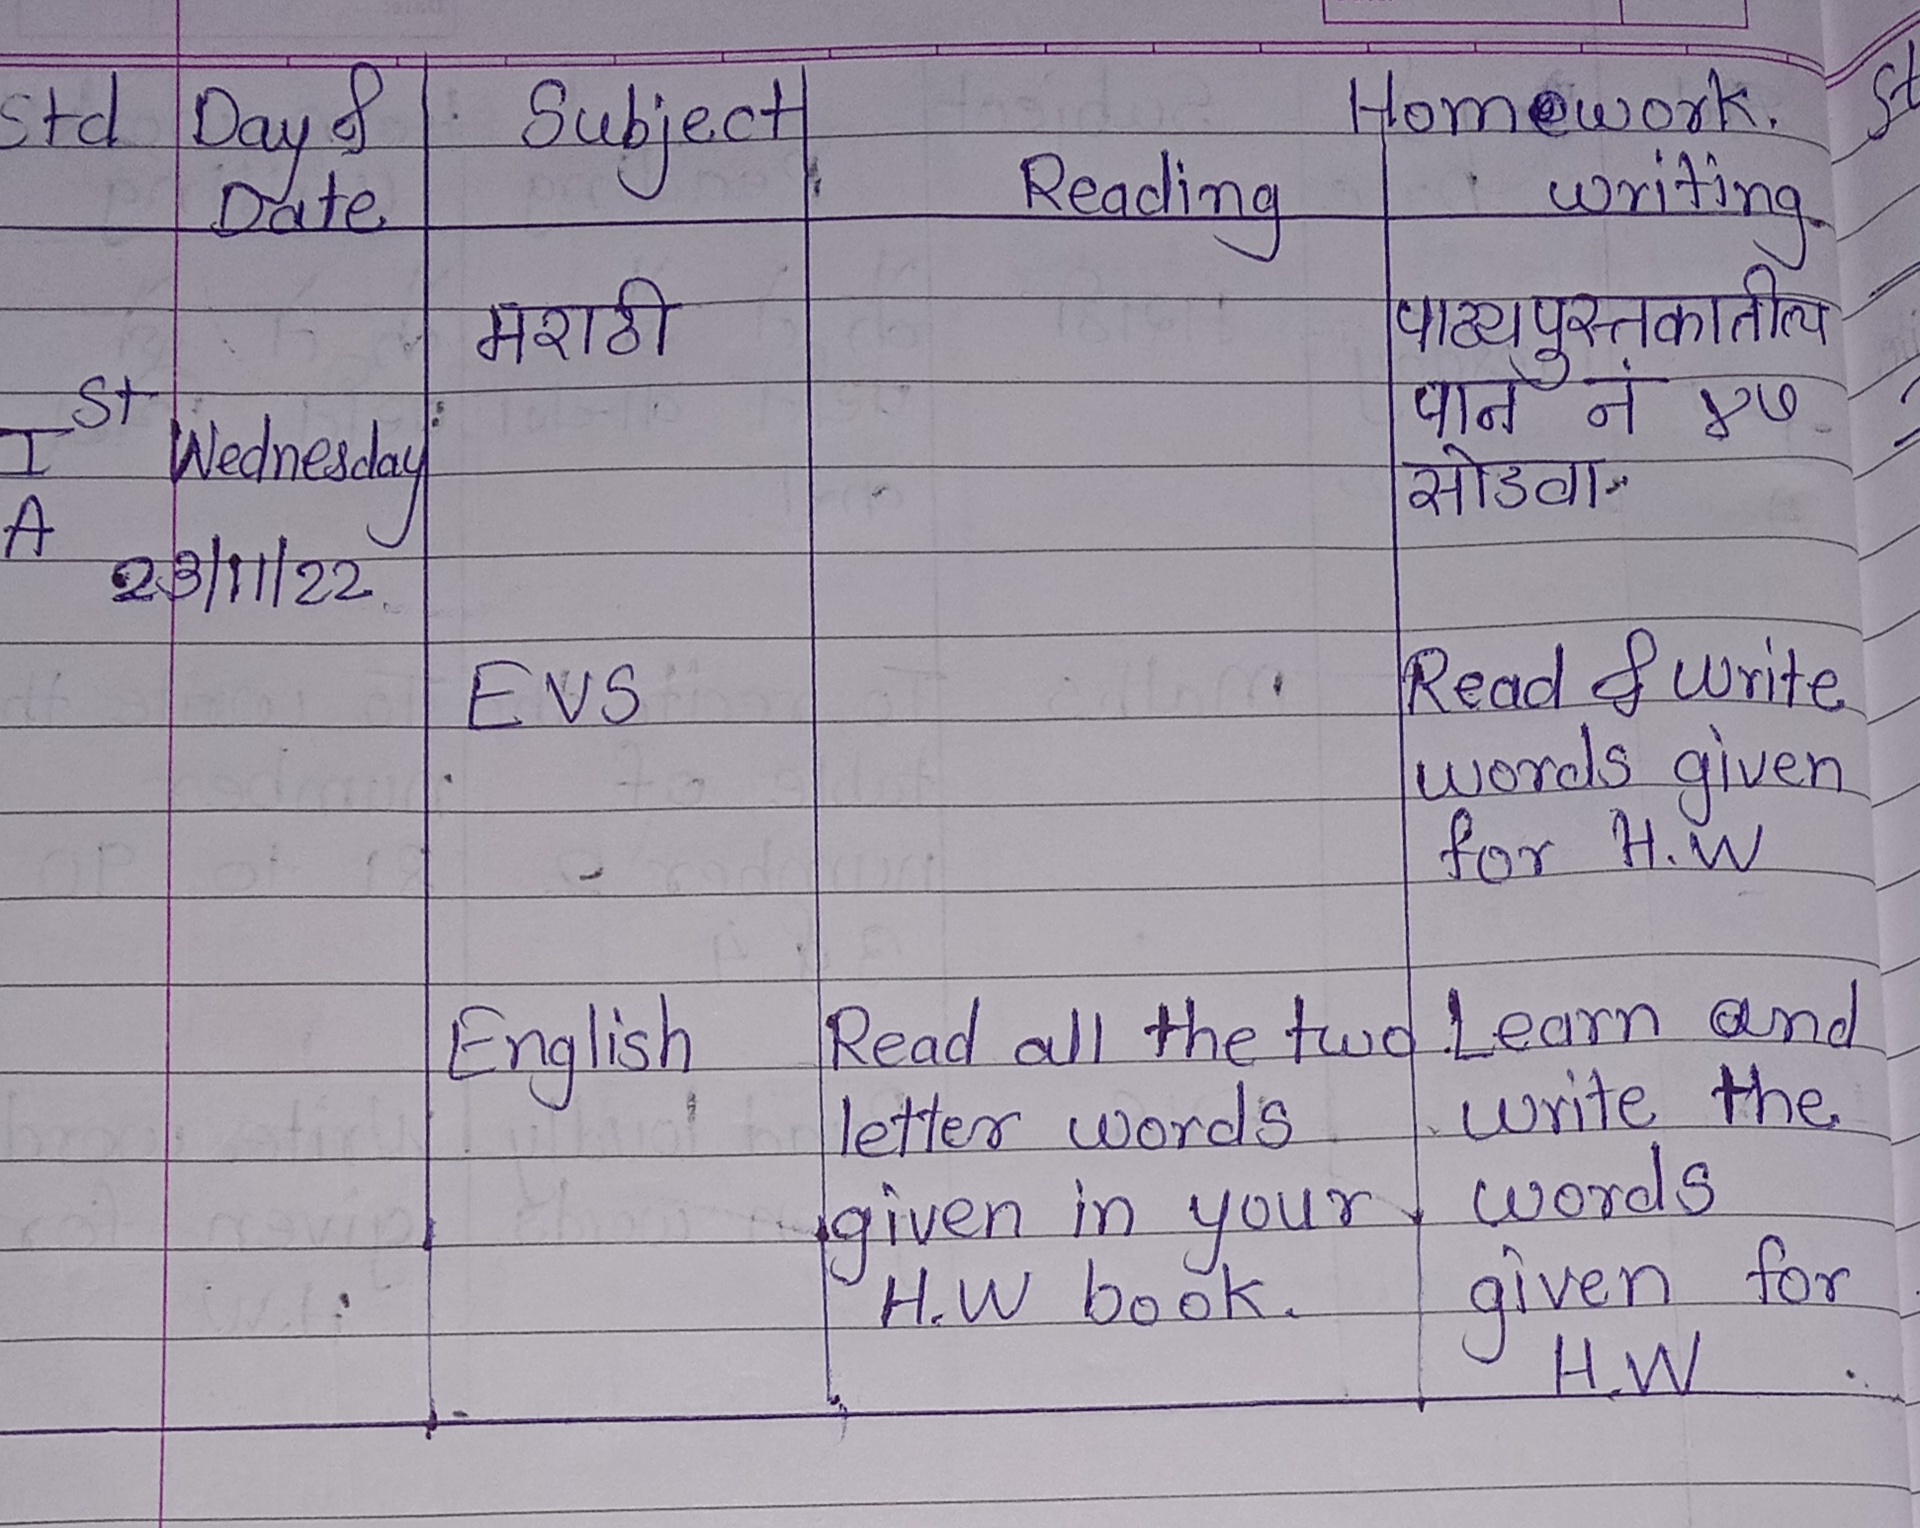 Std Day & Subject Homework.
Date Reading writing
मराठी पाठ्यपुस्तकातील
पान नं ४७
सोडवा.
Ist Wednesday
A
23/11/22
EVS Read & write
words given
for H.W
English Read all the two Learn and
letter words write the
given in your words
H.W book. given for
H.W